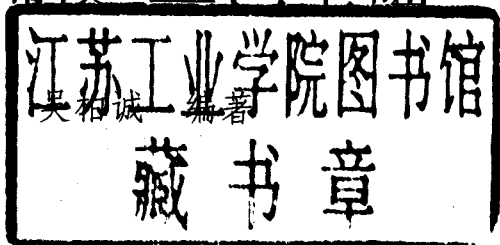 江苏工业学院图书馆
吴柏诚 编著
藏书章